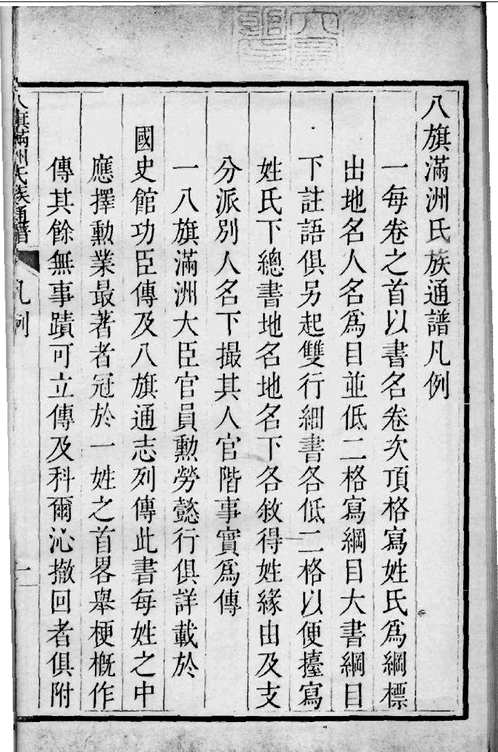 八旗滿洲氏族通譜凡例
一每卷之首以書名卷次頂格寫姓氏爲綱標
出地名人名爲目並低二格寫綱目大書綱目
下註語俱另起雙行細書各低二格以便擡寫
姓氏下總書地名地名下各敘得姓緣由及支
分派別人名下撮其人官階事實爲傳
一八旗滿洲大臣官員勲勞懿行俱詳載於
國史館功臣傳及八旗通志列傳此書每姓之中
應擇勲業最著者冠於一姓之首畧舉梗概作
傳其餘無事蹟可立傳及科爾沁撤回者俱附
八旗滿洲氏族通譜 凡例 一